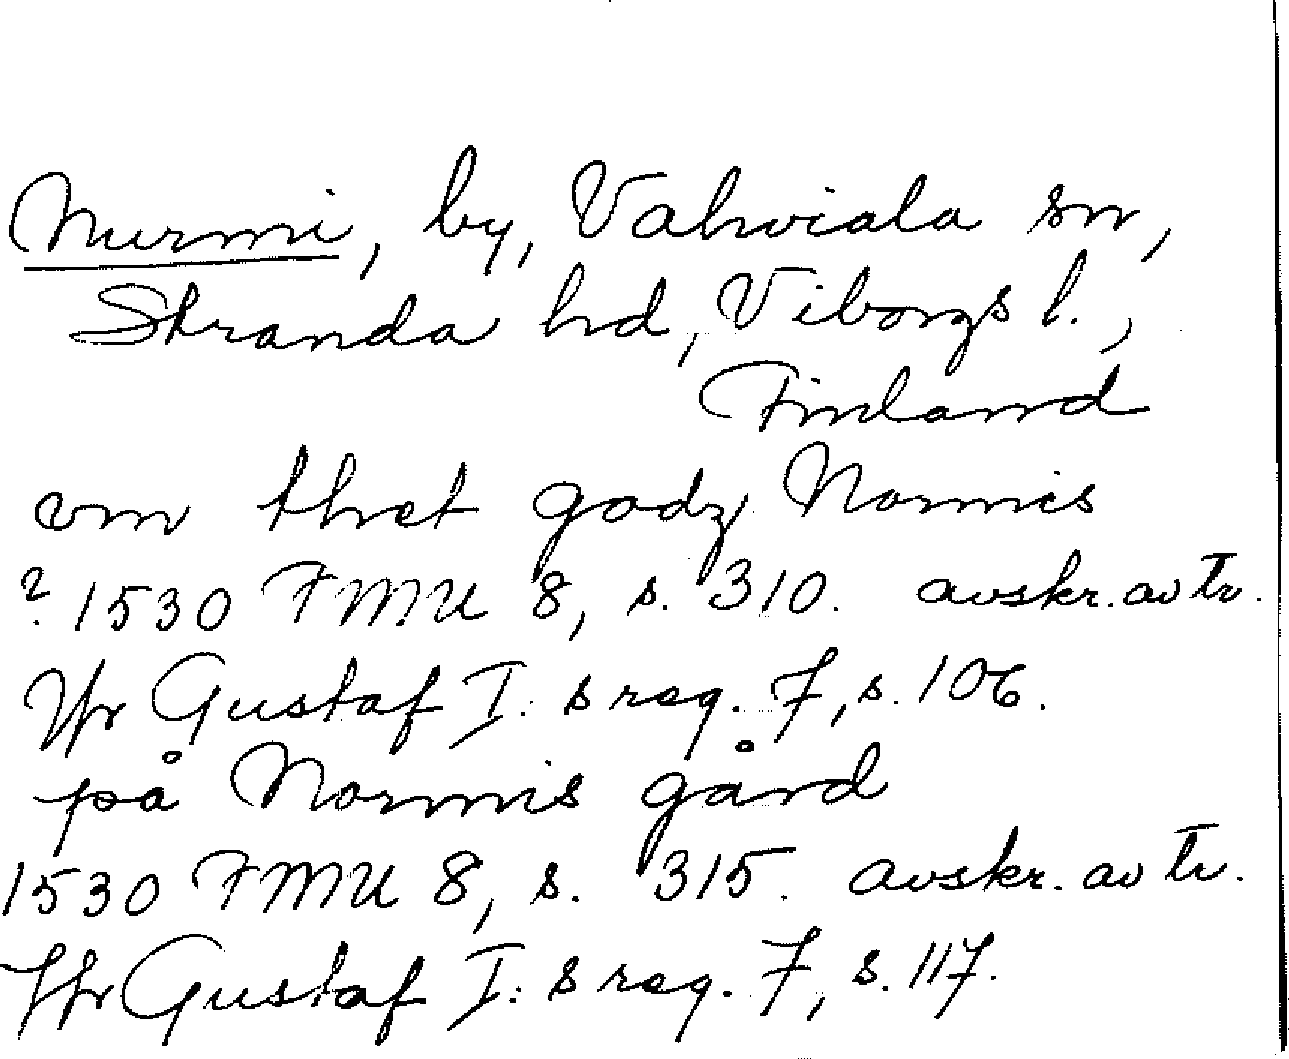 Nurmi, by, Vahviala sn,
Stranda hd, Viborgs l.,
Finland
om thet godz Normis
? 1530 FMU 8, s. 310. avskr. av tr.
Jfr Gustaf I:s reg. 7, s. 106.
på Normis gård
1530 FMU 8, s. 315. avskr. av tr.
Jfr Gustaf I:s reg. 7, s. 117.